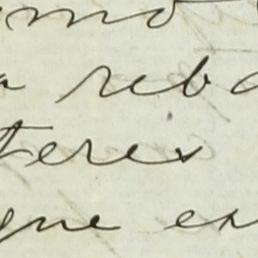 mo
a reba
teres
que es